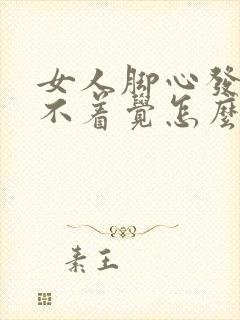 女人脚心發
不着覺怎麼
素王